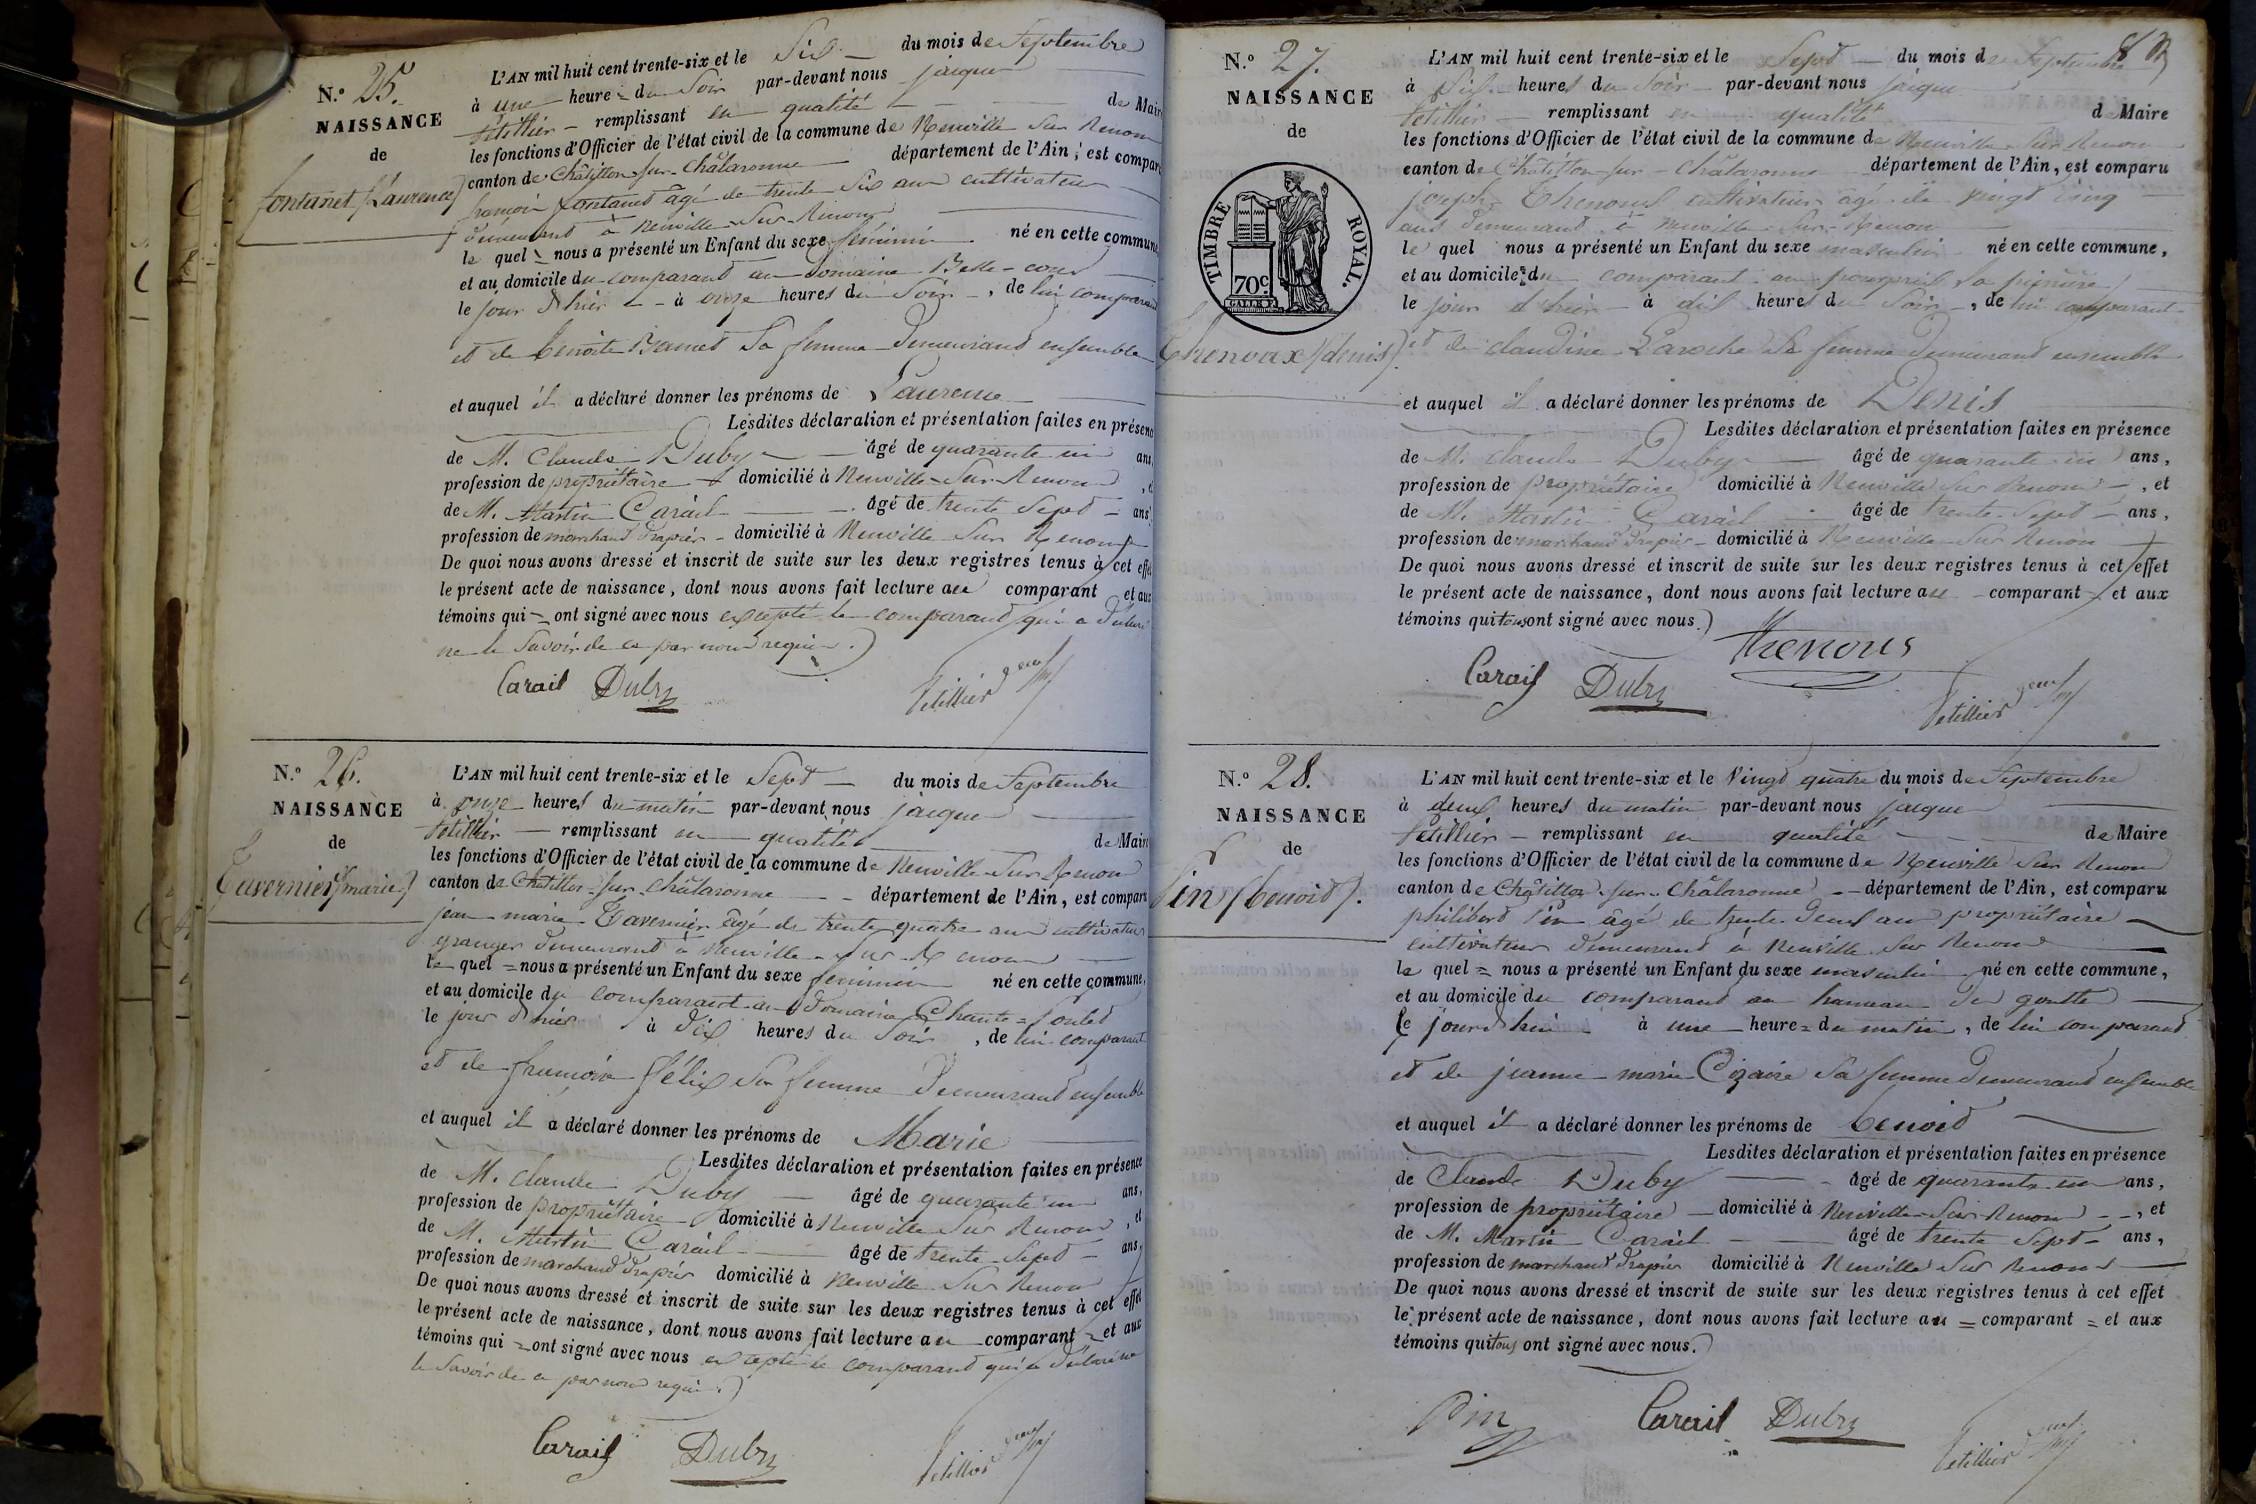 N.° 25.
NAISSANCE
de
fontanet (Laurence)
L'AN mil huit cent trente-six et le Six du mois de Septembre
à une heure du Soir par-devant nous jacques
fétillier remplissant en qualité de Maire
les fonctions d'Officier de l'état civil de la commune de Neuville Sur Renom
canton de Châtillon-sur-Châlaronne département de l'Ain, est comparu
françois fontanet âgé de trente Six ans cultivateur
demeurant à Neuville Sur Renom
le quel nous a présenté un Enfant du sexe féminin né en cette commune,
et au domicile du comparant au domaine Belle-cour
le jour d'hier à onze heures du Soir, de lui comparant
et de benoite Sa femme demeurant ensemble
et auquel il a déclaré donner les prénoms de Laurence
Lesdites déclaration et présentation faites en présence
de M. Claude Duby âgé de quarante un ans,
profession de propriétaire domicilié à Neuville Sur Renom, et
de M. Martin Carail âgé de trente Sept ans,
profession de marchand drapier domicilié à Neuville Sur Renom
De quoi nous avons dressé et inscrit de suite sur les deux registres tenus à cet effet
le présent acte de naissance, dont nous avons fait lecture au comparant et aux
témoins qui ont signé avec nous excepté le comparant qui a déclaré
ne le Savoir de ce par nous requis.)
Carail Duby fétillier
N.° 26.
NAISSANCE
de
Tavernier (marie)
L'AN mil huit cent trente-six et le Sept du mois de Septembre
à onze heures du matin par-devant nous jacques
fétillier remplissant en qualité de Maire
les fonctions d'Officier de l'état civil de la commune de Neuville Sur Renom
canton de Chatillon-sur-châlaronne département de l'Ain, est comparu
jean marie Tavernier âgé de trente quatre ans cultivateur
granger demeurant à Neuville Sur Renom
le quel nous a présenté un Enfant du sexe féminin né en cette commune,
et au domicile du comparant au domaine Chante-
le jour d'hier à dix heures du Soir, de lui comparant
et de françoise félix Sa femme demeurant ensemble
et auquel il a déclaré donner les prénoms de Marie
Lesdites déclaration et présentation faites en présence
de M. claude Duby âgé de quarante un ans,
profession de propriétaire domicilié à Neuville Sur Renom, et
de M. Martin Carail âgé de trente Sept ans,
profession de marchand drapier domicilié à Neuville Sur Renom
De quoi nous avons dressé et inscrit de suite sur les deux registres tenus à cet effet
le présent acte de naissance, dont nous avons fait lecture au comparant et aux
témoins qui ont signé avec nous excepté le comparant qui a déclaré ne
le Savoir de ce par nous requis.)
Carail Duby fétillier
N.° 27.
NAISSANCE
de
TIMBRE ROYAL.
70c.
Thenoux (denis).
L'AN mil huit cent trente-six et le Sept du mois de Septembre
à Six heures du Soir par-devant nous jacques
fétillier remplissant en qualité de Maire
les fonctions d'Officier de l'état civil de la commune de Neuville Sur Renom
canton de Châtillon-sur-châlaronne département de l'Ain, est comparu
joseph Thenoux cultivateur âgé de vingt cinq
ans demeurant à Neuville Sur Renom
le quel nous a présenté un Enfant du sexe masculin né en cette commune,
et au domicile du comparant au
le jour d'hier à dix heures du Soir, de lui comparant
et de claudine Laroche Sa femme demeurant ensemble
et auquel il a déclaré donner les prénoms de Denis
Lesdites déclaration et présentation faites en présence
de M. claude Duby âgé de quarante un ans,
profession de propriétaire domicilié à Neuville Sur Renom, et
de M. Martin Carail âgé de trente Sept ans,
profession de marchand drapier domicilié à Neuville Sur Renom
De quoi nous avons dressé et inscrit de suite sur les deux registres tenus à cet effet
le présent acte de naissance, dont nous avons fait lecture au comparant et aux
témoins qui tous ont signé avec nous.)
Thenous
Carail Duby fétillier
N.° 28.
NAISSANCE
de
Pin (benoit).
L'AN mil huit cent trente-six et le Vingt quatre du mois de Septembre
à deux heures du matin par-devant nous jacques
fétillier remplissant en qualité de Maire
les fonctions d'Officier de l'état civil de la commune de Neuville Sur Renom
canton de Châtillon-sur-Châlaronne département de l'Ain, est comparu
philibert Pin âgé de trente deux ans propriétaire
cultivateur demeurant à Neuville Sur Renom
le quel nous a présenté un Enfant du sexe masculin né en cette commune,
et au domicile du comparant au hameau des goutte
le jour d'hui à une heure du matin, de lui comparant
et de jeanne marie Cizaire Sa femme demeurant ensemble
et auquel il a déclaré donner les prénoms de benoit
Lesdites déclaration et présentation faites en présence
de Claude Duby âgé de quarante un ans,
profession de propriétaire domicilié à Neuville Sur Renom, et
de M. Martin Carail âgé de trente Sept ans,
profession de marchand drapier domicilié à Neuville Sur Renom
De quoi nous avons dressé et inscrit de suite sur les deux registres tenus à cet effet
le présent acte de naissance, dont nous avons fait lecture au comparant et aux
témoins qui tous ont signé avec nous.)
Pin Carail Duby fétillier